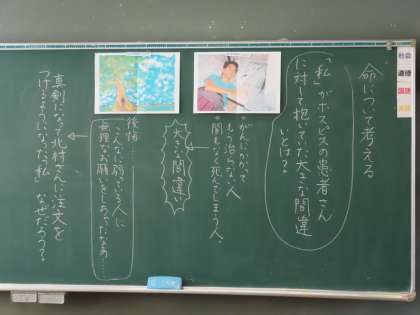 命について考える
「私」がホスピスの患者さん
に対して抱いていた大きな間違
いとは？
・がんにかかって
もう治らない人
・間もなく死んでしまう人、
大きな間違い
後悔……
こんなに弱っている人に
無理なお願いをしちゃったなあ……
真剣になって北村さんに注文を
つけるようになった「私」なぜだろう？
社会
道徳
国語